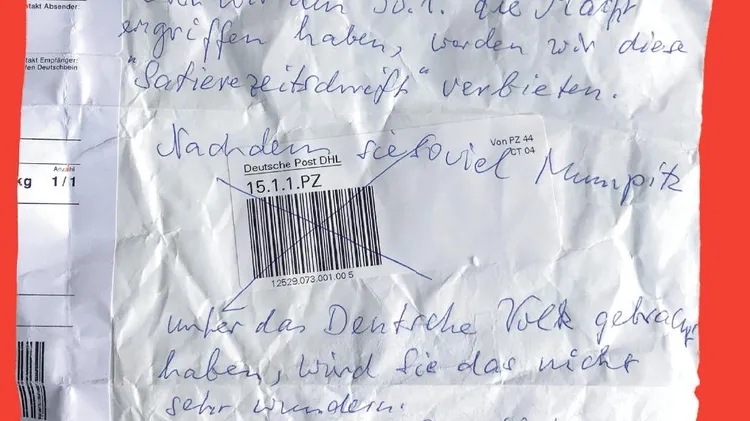 wir den 30.1. die Macht
ergriffen haben, werden wir diese
"Satierezeitschrift" verbieten.
Nachdem sie soviel Mumpitz
unter das Deutsche Volk gebracht
haben, wird Sie das nicht
sehr wundern.
ntakt Absender:
ntakt Empfänger:
fen Deutschbein
Anzahl
kg 1/1
Deutsche Post DHL
Von PZ 44
CT 04
15.1.1.PZ
12529.073.001.00 5